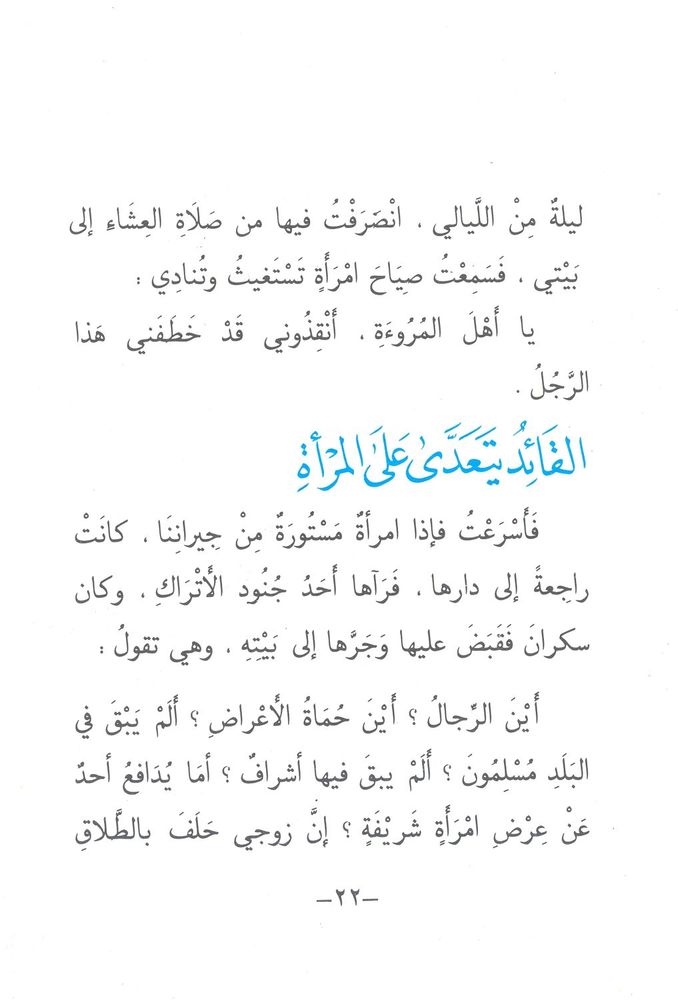 ليلةٌ مِنْ اللَّيالي ، انْصَرَفْتُ فيها من صَلَاةِ العِشَاءِ إلى
بَيْتي ، فَسَمِعْتُ صِيَاحَ امْرَأَةٍ تَسْتَغيثُ وتُنادِي :
يا أَهْلَ المُروءَةِ ، أَنْقِذُوني قَدْ خَطَفَني هَذا
الرَّجُلُ .
القَائِدُ يتَعَدَّى عَلَى المَرْأةِ
فَأَسْرَعْتُ فإذا امرأةٌ مَسْتُورَةٌ مِنْ جِيرانِنَا ، كانَتْ
راجِعةً إلى دارها ، فَرَآها أَحَدُ جُنُود الأَتْرَاكِ ، وكان
سكرانَ فَقَبَضَ عليها وَجَرَّها إلى بَيْتِهِ ، وهي تقولُ :
أَيْنَ الرِّجالُ ؟ أَيْنَ حُمَاةُ الأَعْراضِ ؟ أَلَمْ يَبْقَ في
البَلَدِ مُسْلِمُونَ ؟ أَلَمْ يبقَ فيها أشرافٌ ؟ أمَا يُدَافعُ أحدٌ
عَنْ عِرْضِ امْرَأَةٍ شَرِيْفَةٍ ؟ إنَّ زوجي حَلَفَ بالطَّلاقِ
–٢٢–